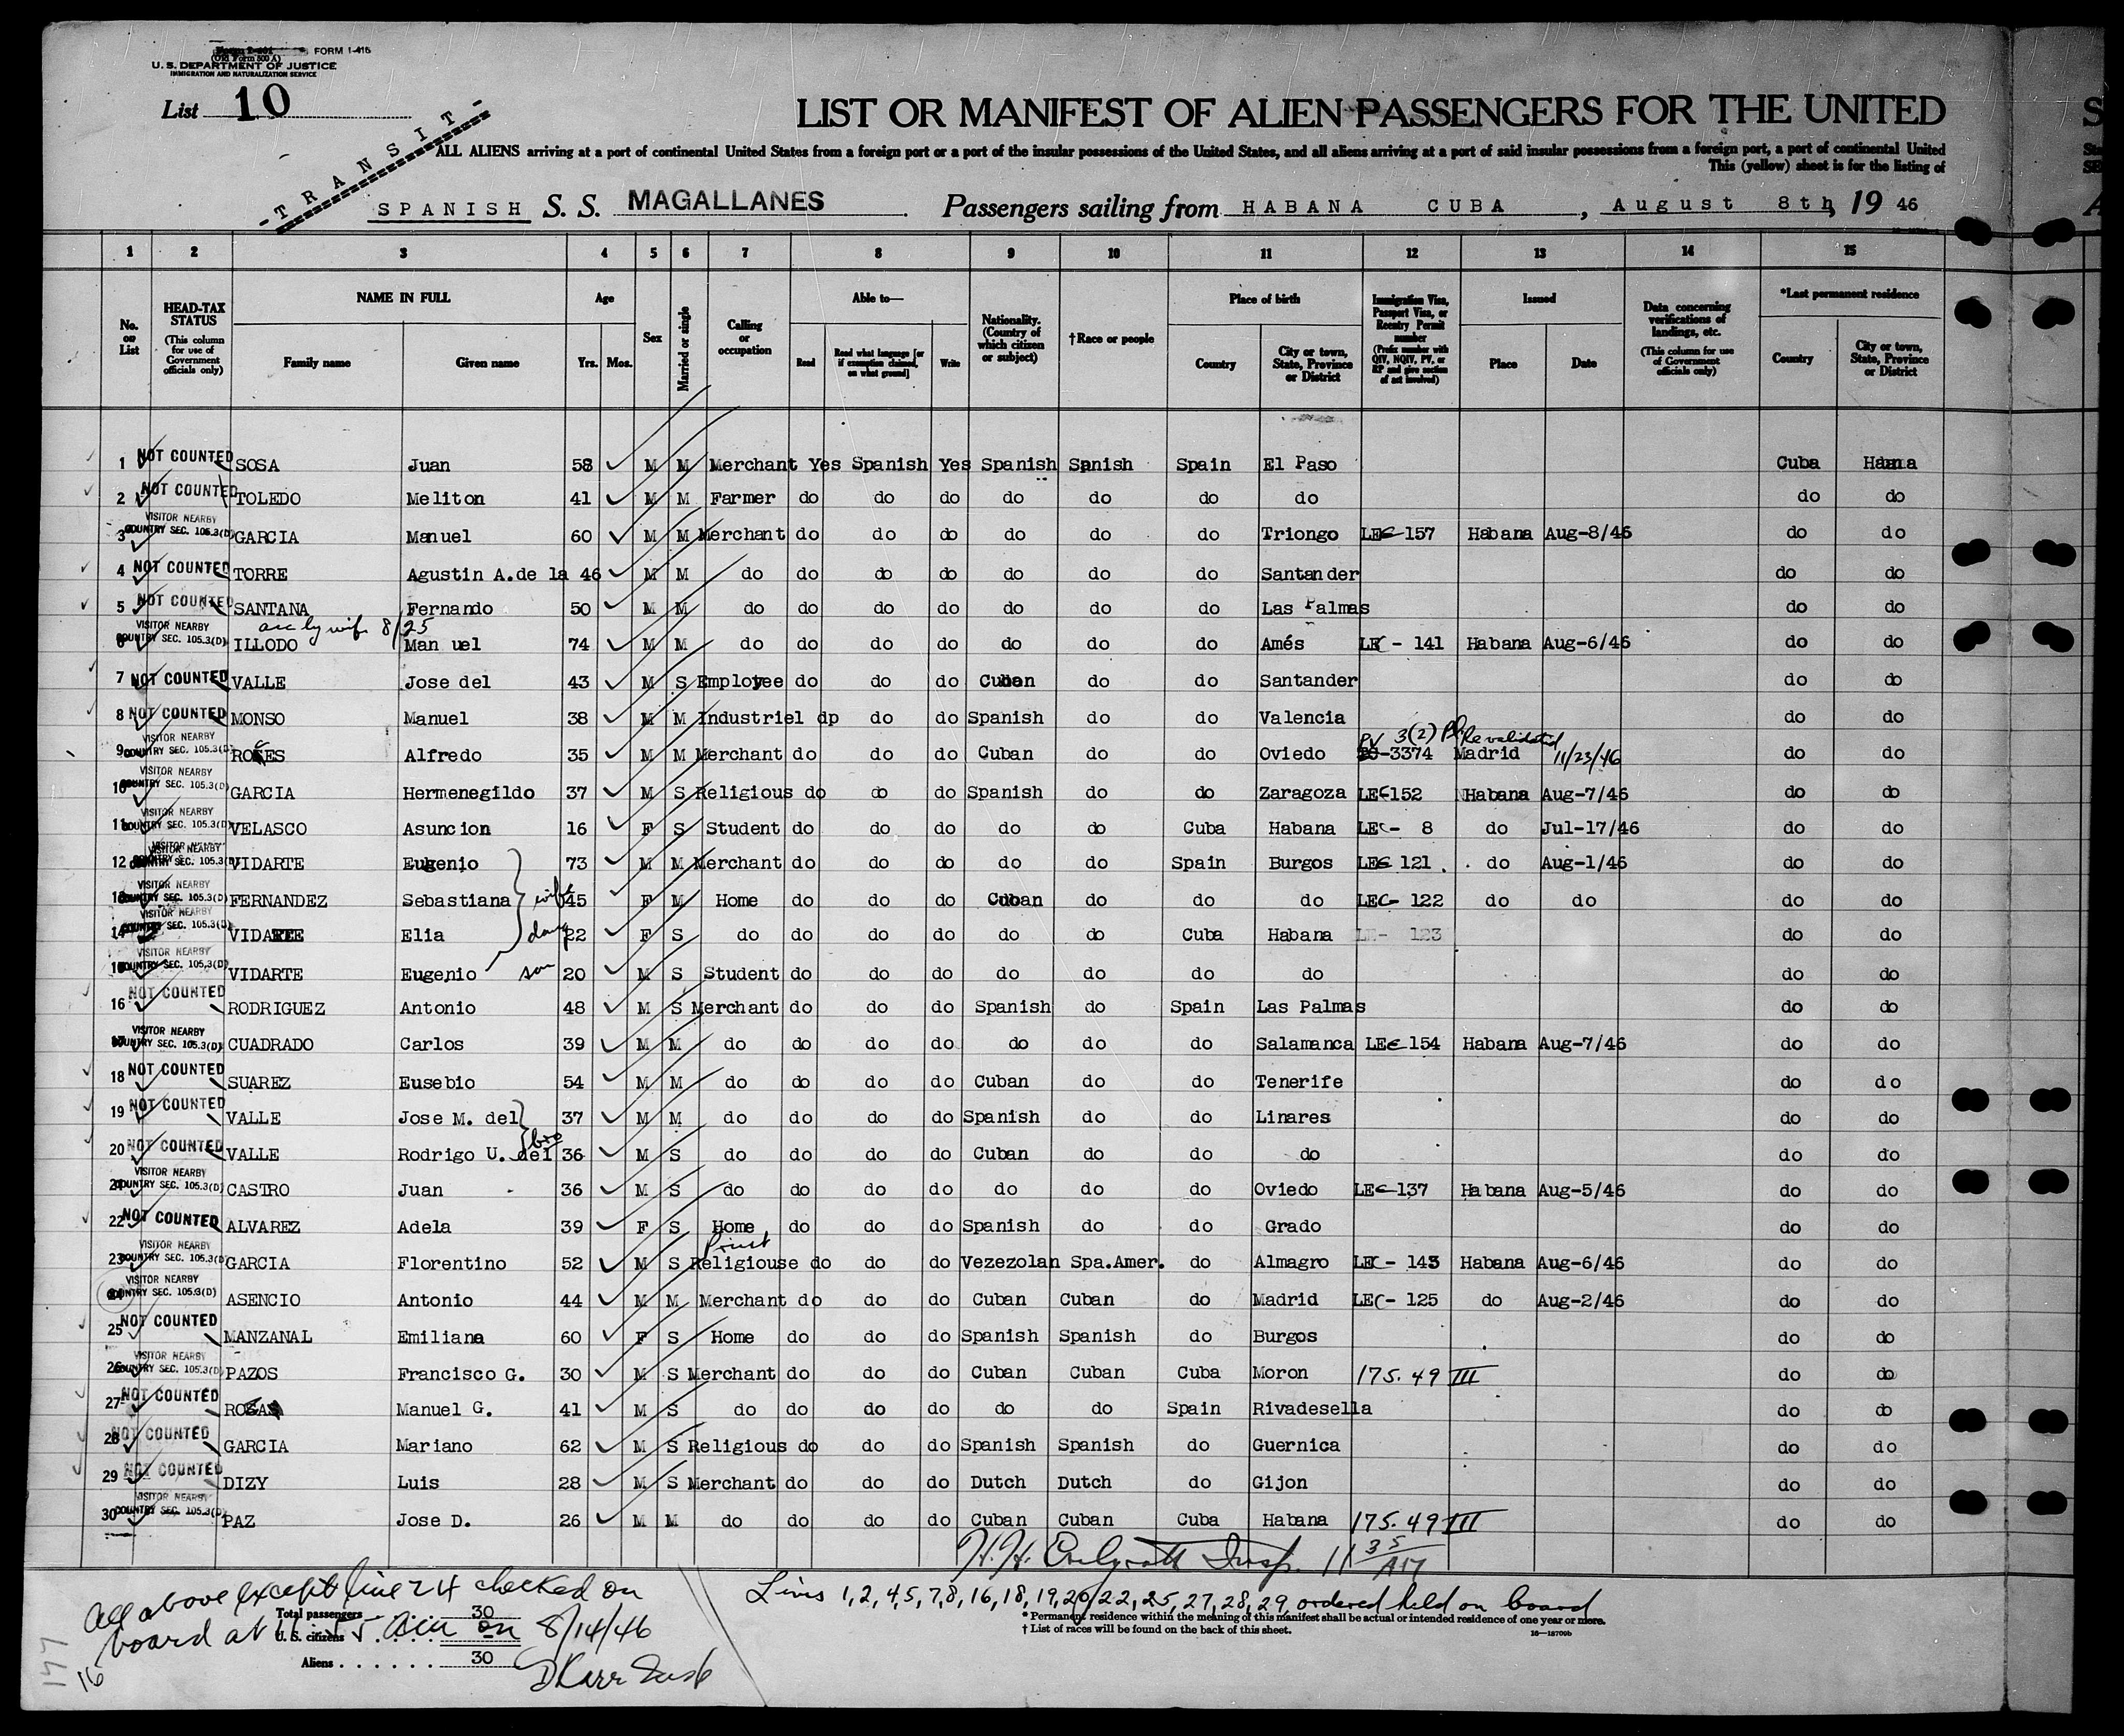 FORM I-415
(Old Form 500 A)
U. S. DEPARTMENT OF JUSTICE
IMMIGRATION AND NATURALIZATION SERVICE
List 10
- T R A N S I T -
LIST OR MANIFEST OF ALIEN PASSENGERS FOR THE UNITED
ALL ALIENS arriving at a port of continental United States from a foreign port or a port of the insular possessions of the United States, and all aliens arriving at a port of said insular possessions from a foreign port, a port of continental United
This (yellow) sheet is for the listing of
SPANISH S. S. MAGALLANES Passengers sailing from HABANA CUBA , August 8th, 19 46
1 2 3 4 5 6 7 8 9 10 11 12 13 14 15
No. on List
HEAD-TAX STATUS (This column for use of Government officials only)
NAME IN FULL Family name Given name
Age Yrs. Mos.
Sex
Married or single
Calling or occupation
Able to— Read Read what language [or if exemption claimed, on what ground] Write
Nationality. (Country of which citizen or subject)
†Race or people
Place of birth Country City or town, State, Province or District
Immigration Visa, Passport Visa, or Reentry Permit number (Prefix number with QIV, NQIV, PV, or RP and give section of act involved)
Issued Place Date
Data concerning verifications of landings, etc. (This column for use of Government officials only)
*Last permanent residence Country City or town, State, Province or District
1 NOT COUNTED SOSA Juan 58 M M Merchant Yes Spanish Yes Spanish Spnish Spain El Paso Cuba Habana
2 NOT COUNTED TOLEDO Meliton 41 M M Farmer do do do do do do do do do
3 VISITOR NEARBY COUNTRY SEC. 105.3(D) GARCIA Manuel 60 M M Merchant do do do do do do Triongo LEC 157 Habana Aug-8/46 do do
4 NOT COUNTED TORRE Agustin A.de la 46 M M do do do do do do do Santander do do
5 NOT COUNTED SANTANA Fernando 50 M M do do do do do do do Las Palmas do do
8/25
6 VISITOR NEARBY COUNTRY SEC. 105.3(D) ILLODO Man uel 74 M M do do do do do do do Amés LEC - 141 Habana Aug-6/46 do do
7 NOT COUNTED VALLE Jose del 43 M S Employee do do do Cuban do do Santander do do
8 NOT COUNTED MONSO Manuel 38 M M Industriel dp do do Spanish do do Valencia do do
PV 3(2) Revalidated
9 VISITOR NEARBY COUNTRY SEC. 105.3(D) ROCES Alfredo 35 M M Merchant do do do Cuban do do Oviedo -3374 Madrid 11/23/46 do do
10 VISITOR NEARBY COUNTRY SEC. 105.3(D) GARCIA Hermenegildo 37 M S Religious do do do Spanish do do Zaragoza LEC-152 Habana Aug-7/46 do do
11 VISITOR NEARBY COUNTRY SEC. 105.3(D) VELASCO Asuncion 16 F S Student do do do do do Cuba Habana LEC- 8 do Jul-17/46 do do
12 VISITOR NEARBY COUNTRY SEC. 105.3(D) VIDARTE Eugenio 73 M M Merchant do do do do do Spain Burgos LEC 121 do Aug-1/46 do do
13 VISITOR NEARBY COUNTRY SEC. 105.3(D) FERNANDEZ Sebastiana wife 45 F M Home do do do Cuban do do do LEC- 122 do do do do
14 VISITOR NEARBY COUNTRY SEC. 105.3(D) VIDARTE Elia dau 22 F S do do do do do do Cuba Habana LE- 123 do do
15 VISITOR NEARBY COUNTRY SEC. 105.3(D) VIDARTE Eugenio son 20 M S Student do do do do do do do do do
16 NOT COUNTED RODRIGUEZ Antonio 48 M S Merchant do do do Spanish do Spain Las Palmas do do
17 VISITOR NEARBY COUNTRY SEC. 105.3(D) CUADRADO Carlos 39 M M do do do do do do do Salamanca LEC 154 Habana Aug-7/46 do do
18 NOT COUNTED SUAREZ Eusebio 54 M M do do do do Cuban do do Tenerife do do
19 NOT COUNTED VALLE Jose M. del 37 M M do do do do Spanish do do Linares do do
20 NOT COUNTED VALLE Rodrigo U. del bro 36 M S do do do do Cuban do do do do do
21 VISITOR NEARBY COUNTRY SEC. 105.3(D) CASTRO Juan 36 M S do do do do do do do Oviedo LEC-137 Habana Aug-5/46 do do
22 NOT COUNTED ALVAREZ Adela 39 F S Home do do do Spanish do do Grado do do
Priest
23 VISITOR NEARBY COUNTRY SEC. 105.3(D) GARCIA Florentino 52 M S Religiouse do do do Vezezolan Spa.Amer. do Almagro LEC - 143 Habana Aug-6/46 do do
24 VISITOR NEARBY COUNTRY SEC. 105.3(D) ASENCIO Antonio 44 M M Merchant do do do Cuban Cuban do Madrid LEC- 125 do Aug-2/46 do do
25 NOT COUNTED MANZANAL Emiliana 60 F S Home do do do Spanish Spanish do Burgos do do
26 VISITOR NEARBY COUNTRY SEC. 105.3(D) PAZOS Francisco G. 30 M S Merchant do do do Cuban Cuban Cuba Moron 175.49 III do do
27 NOT COUNTED Manuel G. 41 M S do do do do do do Spain Rivadesella do do
28 NOT COUNTED GARCIA Mariano 62 M S Religious do do do Spanish Spanish do Guernica do do
29 NOT COUNTED DIZY Luis 28 M S Merchant do do do Dutch Dutch do Gijon do do
30 VISITOR NEARBY COUNTRY SEC. 105.3(D) PAZ Jose D. 26 M M do do do do Cuban Cuban Cuba Habana 175.49 III do do
H.H. Insp. 11 35/AM
All above except line 24 checked on
board at 11:55 AM on 8/14/46
Lines 1,2,4,5,7,8,16,18,19,20,22,25,27,28,29 ordered held on board
Total passengers 30
U. S. citizens
Aliens 30
D Karr Insp
* Permanent residence within the meaning of this manifest shall be actual or intended residence of one year or more.
† List of races will be found on the back of this sheet.
16—18700b
147
16